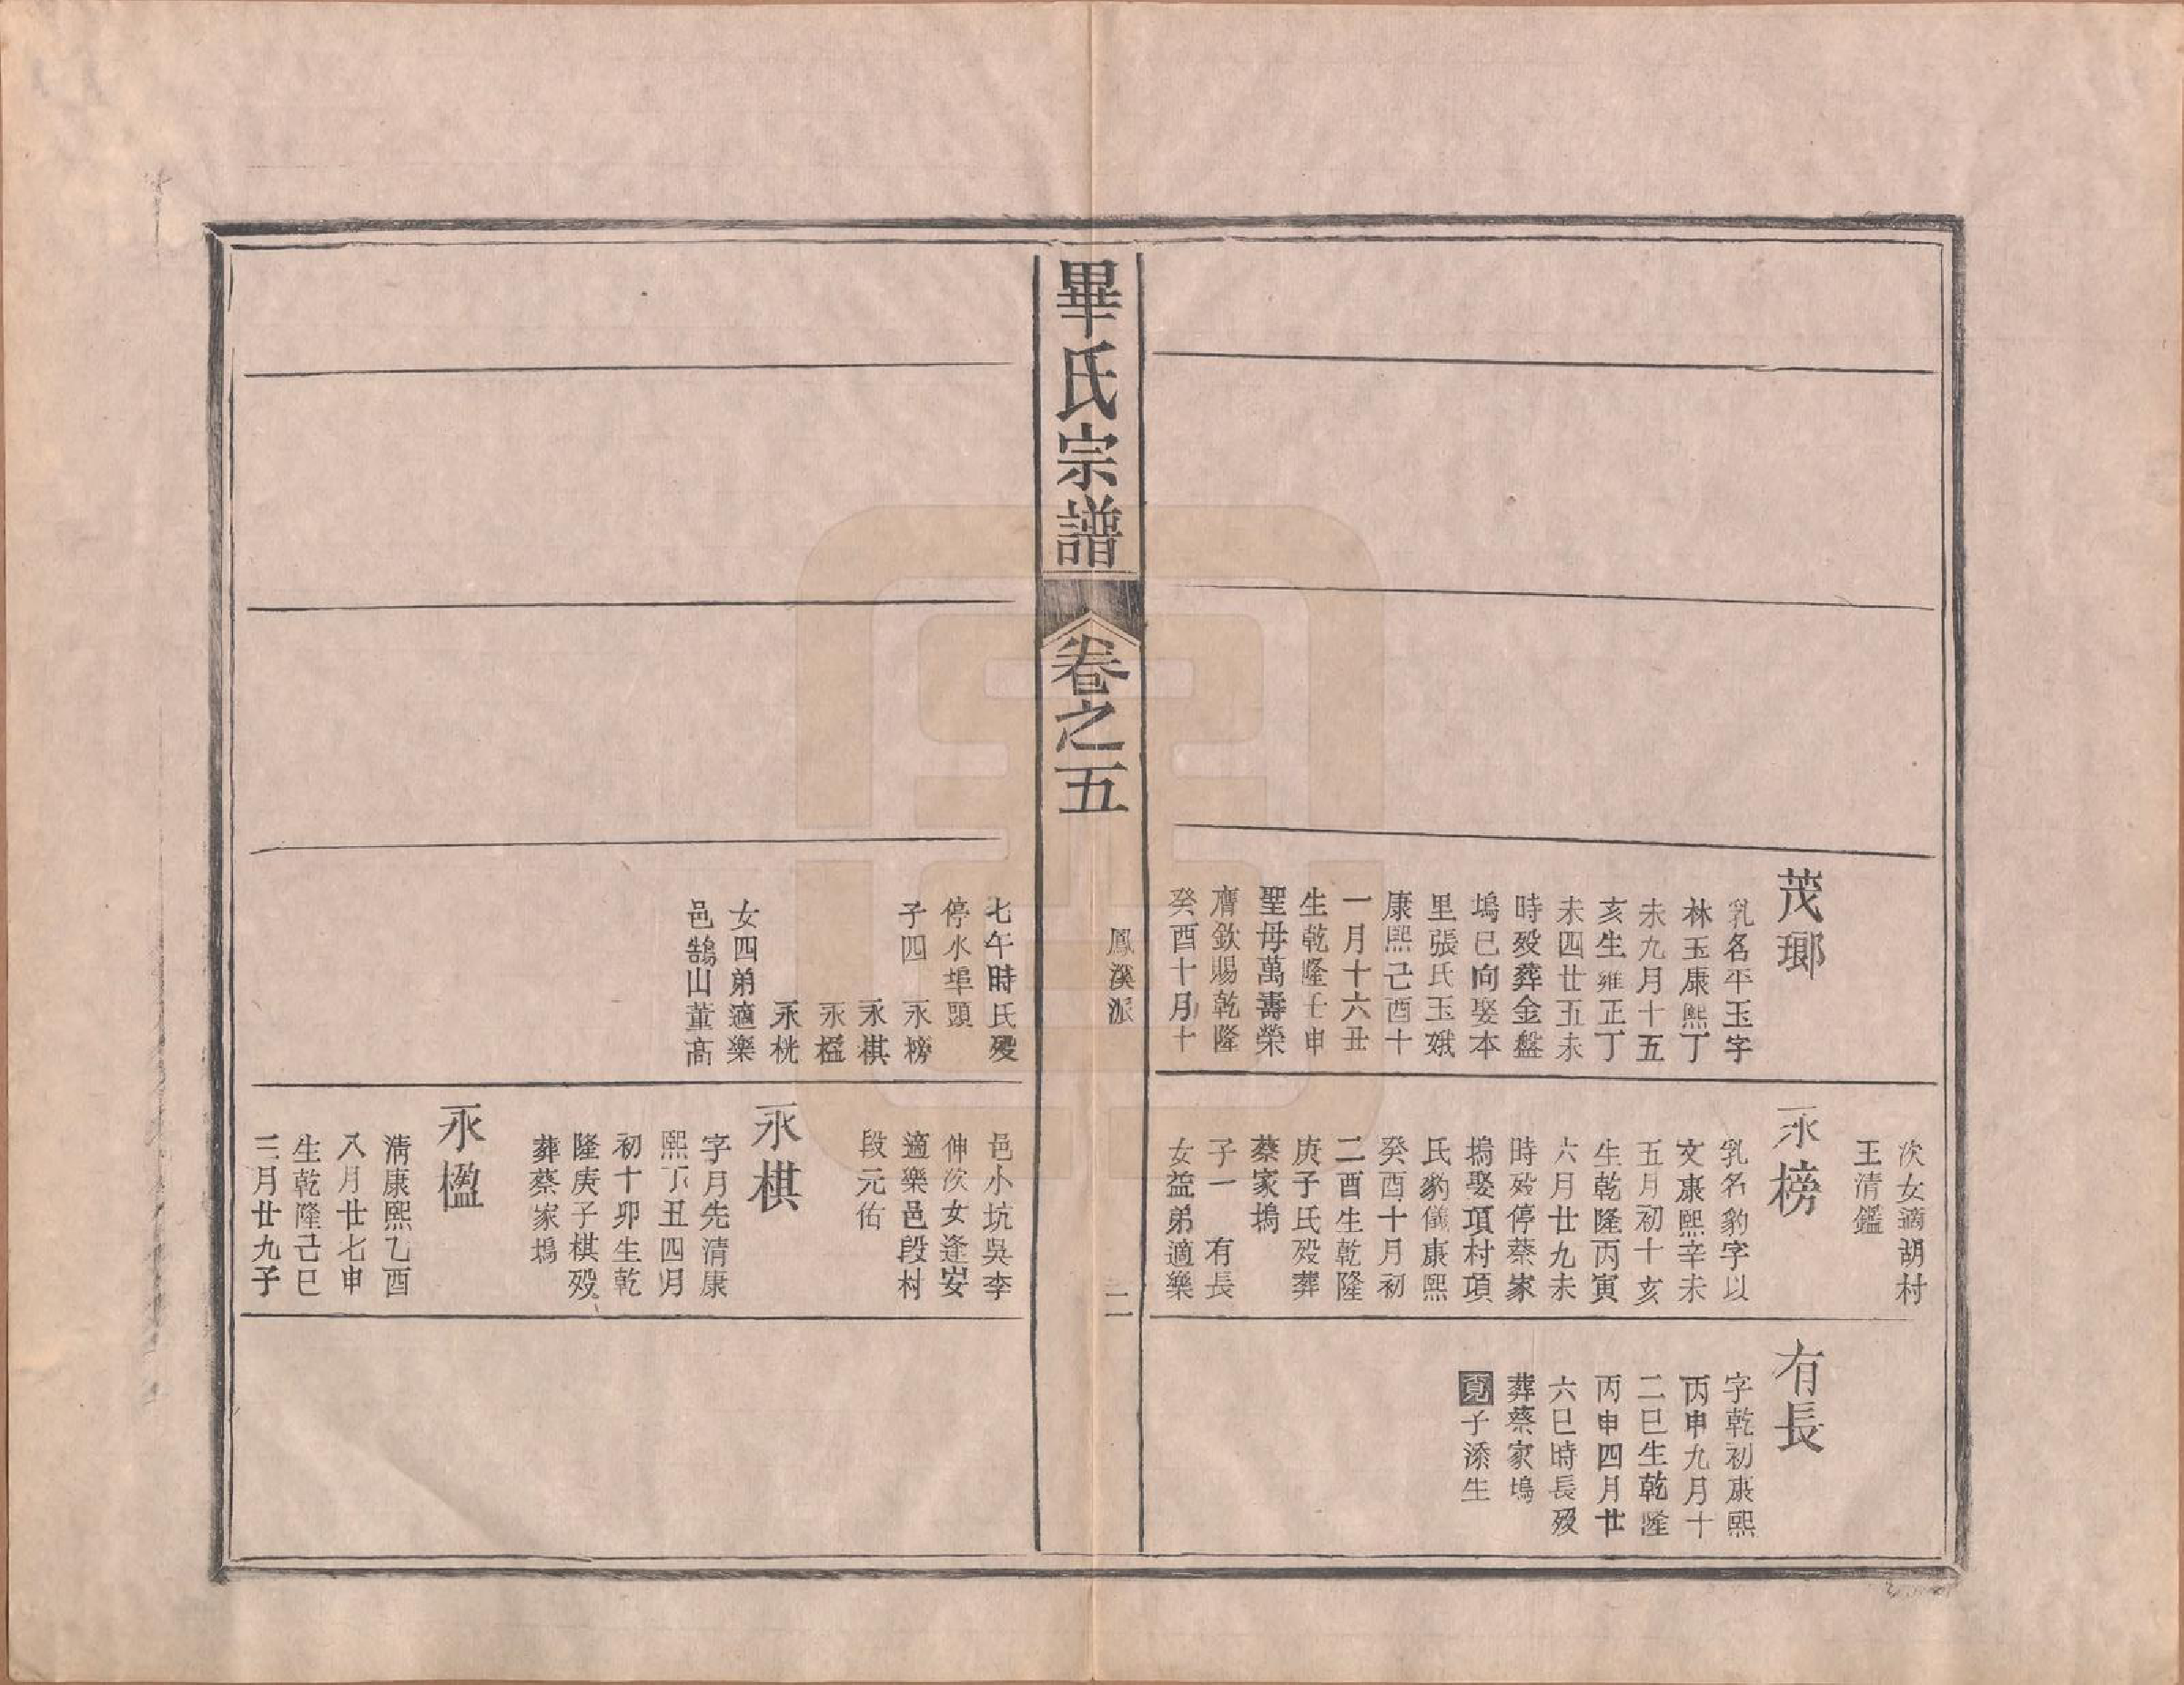 茂瑯
乳名平玉字
林玉康熙丁
未九月十五
亥生雍正丁
未四廿五未
時歿葬金盤
塢巳向娶本
里張氏玉娥
康熙己酉十
一月十六丑
生乾隆壬申
聖母萬壽榮
膺欽賜乾隆
癸酉十月十
次女適胡村
王清鑑
永榜
乳名豹字以
文康熙辛未
五月初十亥
生乾隆丙寅
六月廿九未
時歿停蔡家
塢娶項村項
氏豹儀康熙
癸酉十月初
二酉生乾隆
庚子氏歿葬
蔡家塢
子一 有長
女益弟適樂
有長
字乾初康熙
丙申九月十
二巳生乾隆
丙申四月廿
六巳時長歿
葬蔡家塢
覓子添生
畢氏宗譜
卷之五
鳳溪派
二
七午時氏歿
停水埠頭
子四 永榜
永棋
永楹
永桄
女四弟適樂
邑鵠山董高
邑小坑吳李
伸次女逢安
適樂邑段村
段元佑
永棋
字月先清康
熙丁丑四月
初十卯生乾
隆庚子棋歿
葬蔡家塢
永楹
清康熙乙酉
八月廿七申
生乾隆己巳
三月廿九子